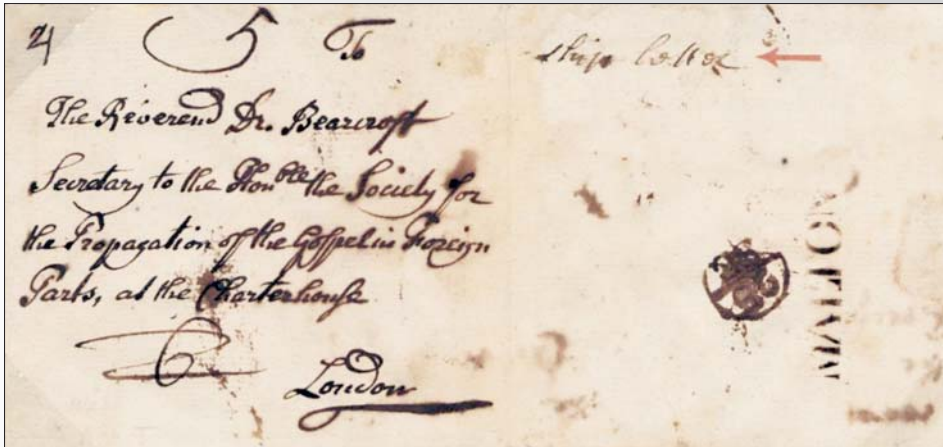 4 5 To
ship letter
The Reverend Dr. Bearcroft
Secretary to the Honble the Society for
the Propagation of the Gospel in Foreign
Parts, at the Charterhouse
London
MALTON